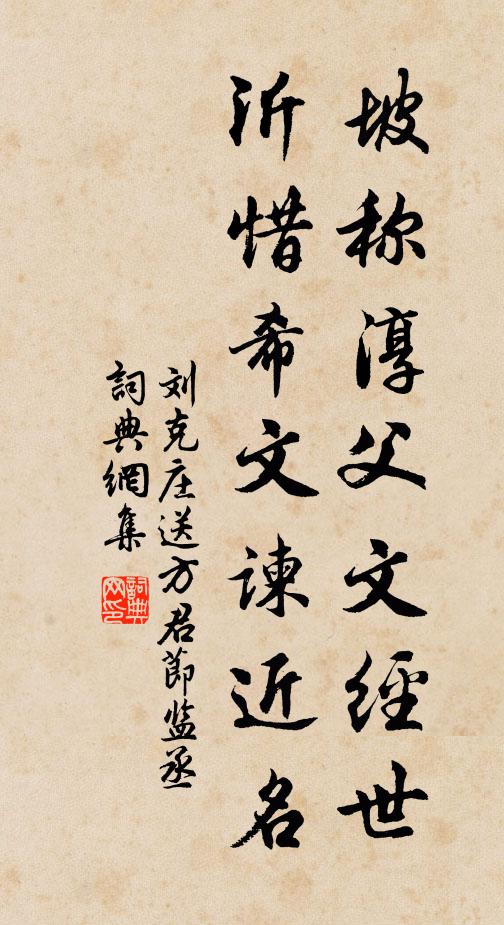 坡称淳父文經世
沂惜希文諫近名
刘克庄送方君節监丞
詞典網集
詞典
网印